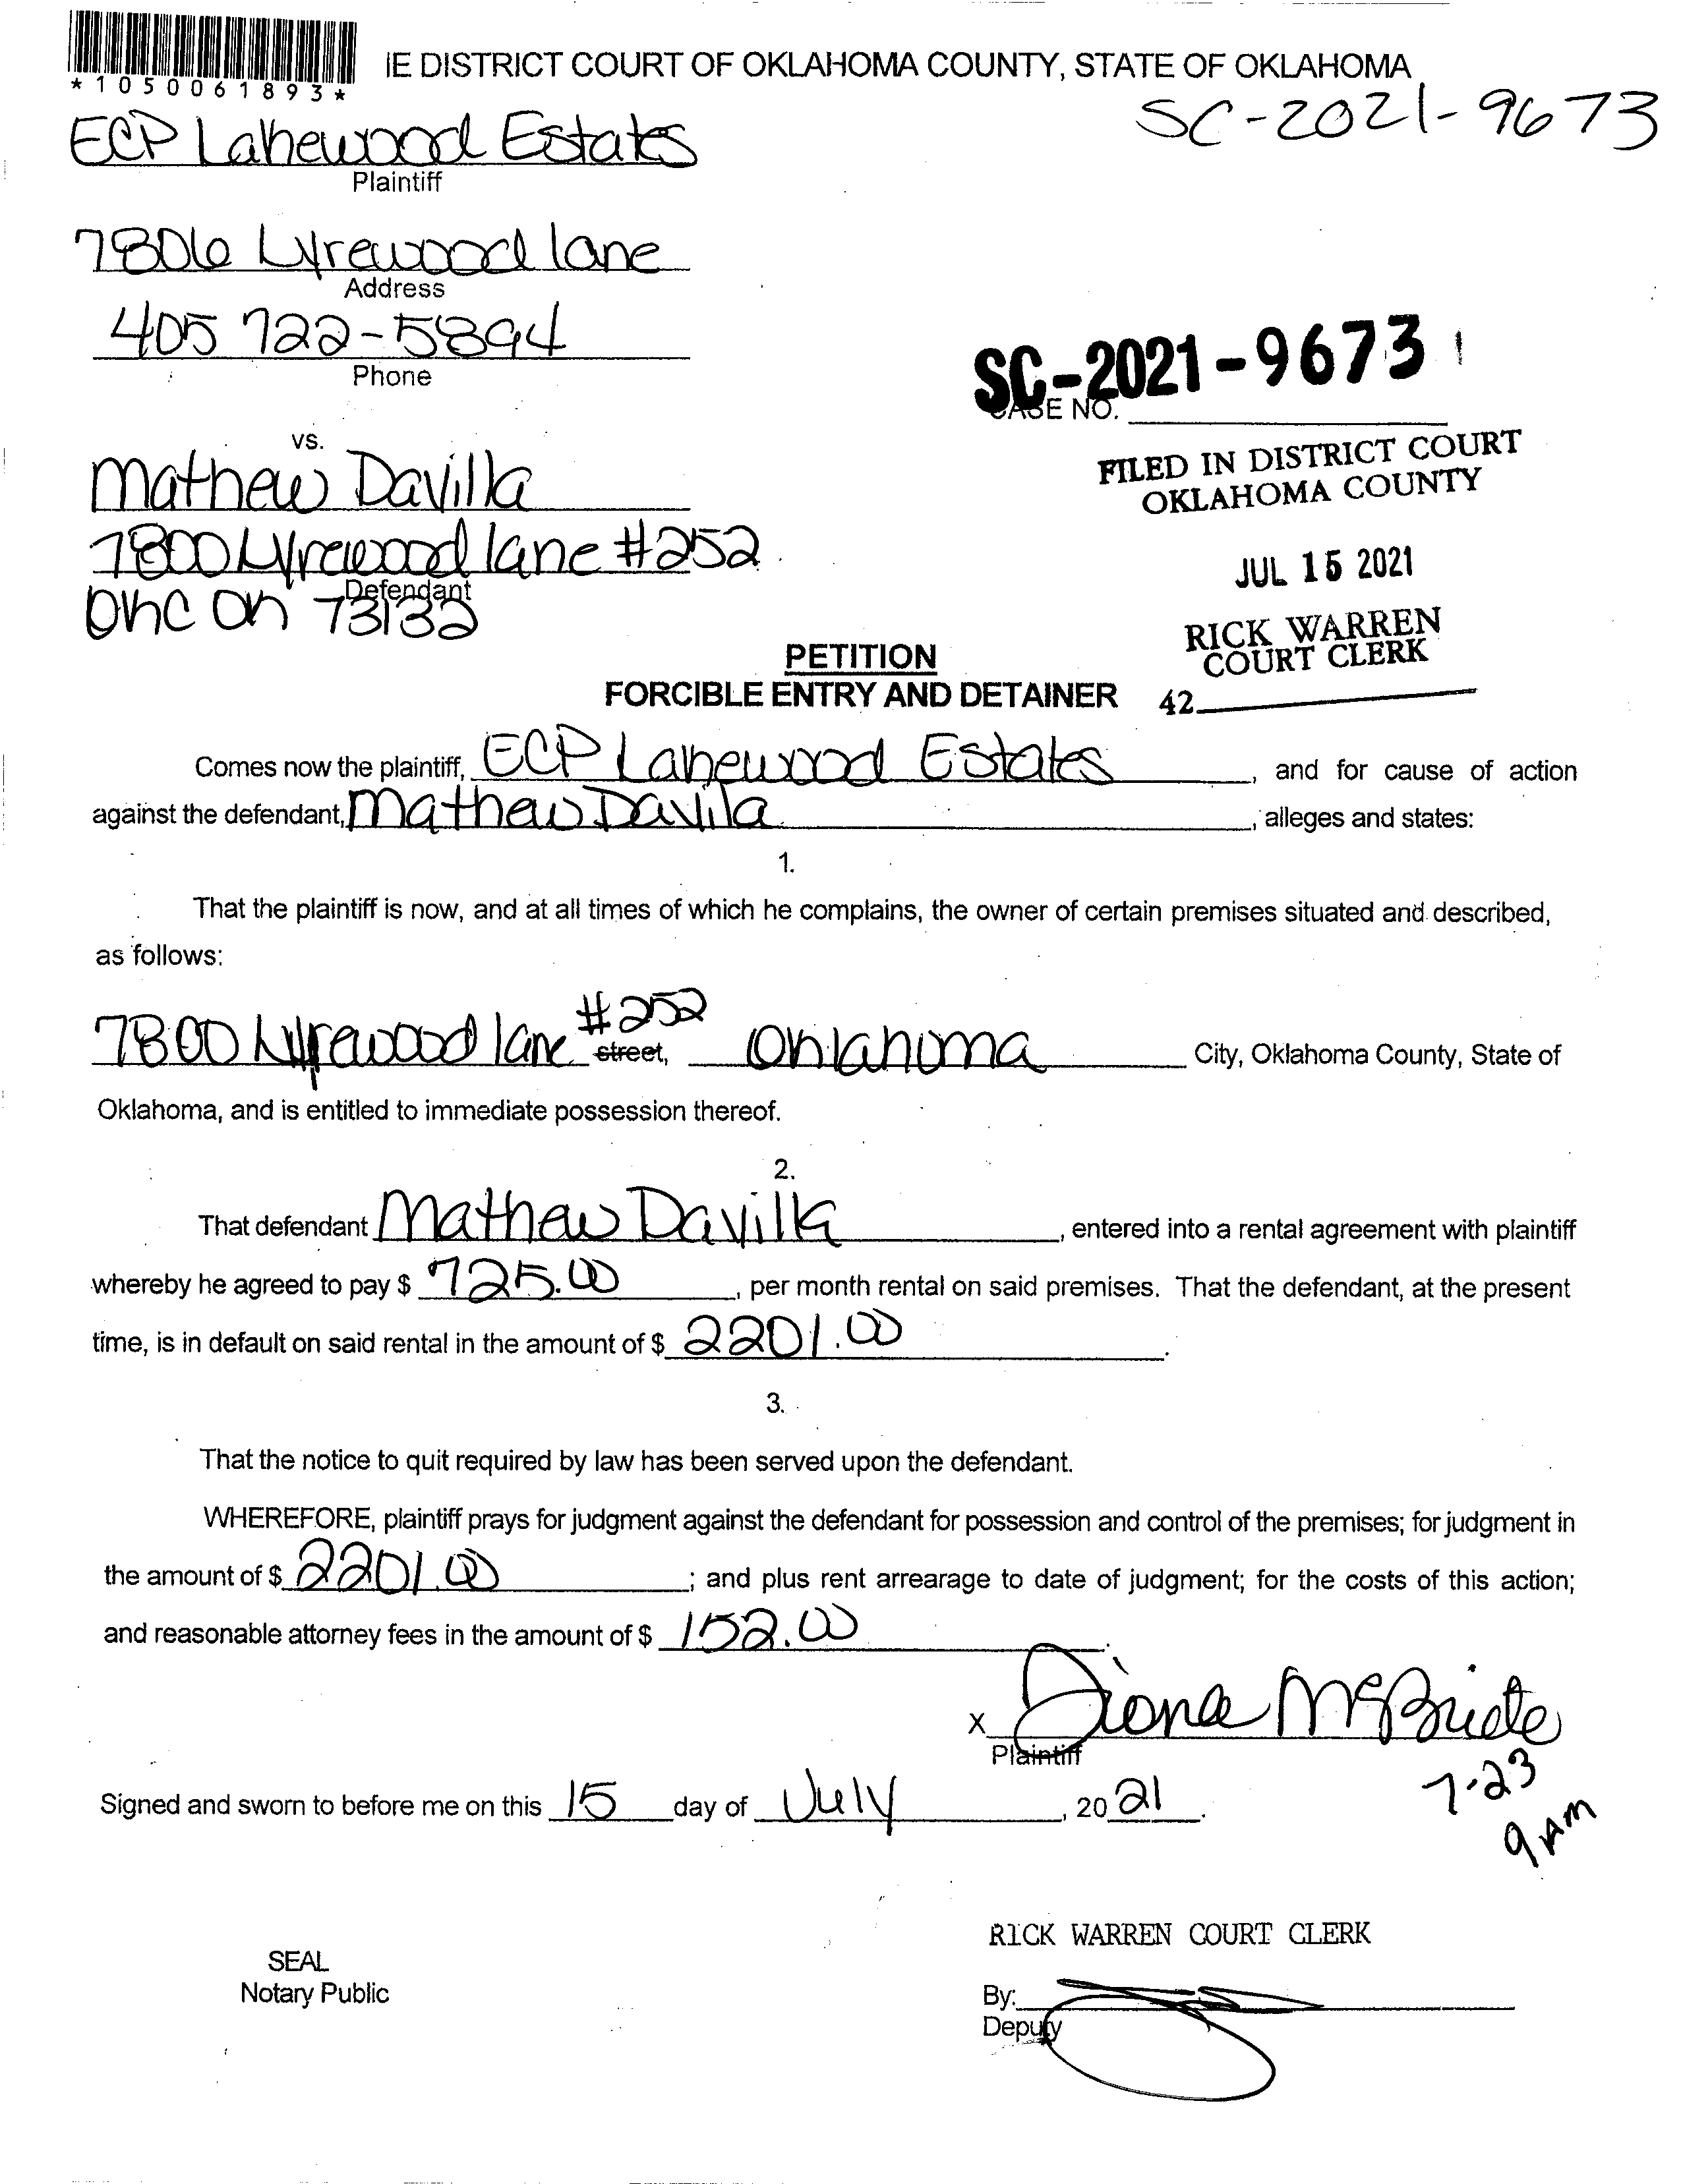 *1050061893*
IE DISTRICT COURT OF OKLAHOMA COUNTY, STATE OF OKLAHOMA
SC-2021-9673
ECP Lakewood Estates
Plaintiff
7806 Lyrewood lane
Address
405 722-5894
Phone
SC-2021-9673
CASE NO.
vs.
Mathew Davilla
7800 Lyrewood lane #252
Defendant
OKC OK 73132
FILED IN DISTRICT COURT
OKLAHOMA COUNTY
JUL 15 2021
RICK WARREN
COURT CLERK
42
PETITION
FORCIBLE ENTRY AND DETAINER
Comes now the plaintiff, ECP Lakewood Estates, and for cause of action
against the defendant, Mathew Davila, alleges and states:
1.
That the plaintiff is now, and at all times of which he complains, the owner of certain premises situated and described,
as follows:
7800 Lyrewood lane #252 street, Oklahoma City, Oklahoma County, State of
Oklahoma, and is entitled to immediate possession thereof.
2.
That defendant Mathew Davilla, entered into a rental agreement with plaintiff
whereby he agreed to pay $ 725.00, per month rental on said premises. That the defendant, at the present
time, is in default on said rental in the amount of $ 2201.00.
3.
That the notice to quit required by law has been served upon the defendant.
WHEREFORE, plaintiff prays for judgment against the defendant for possession and control of the premises; for judgment in
the amount of $ 2201.00; and plus rent arrearage to date of judgment; for the costs of this action;
and reasonable attorney fees in the amount of $ 152.00.
x Diona McBride
Plaintiff
7-23
9 AM
Signed and sworn to before me on this 15 day of July, 2021.
RICK WARREN COURT CLERK
SEAL
Notary Public
By:
Deputy